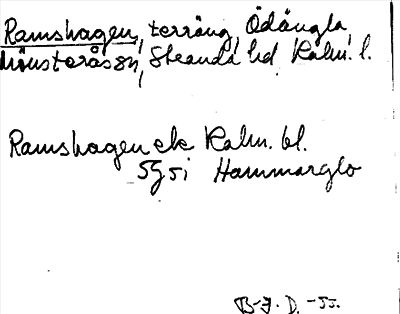 Ramshagen, terräng, Ödängla,
Mönsterås sn, Stranda hd, Kalm. l.
Ramshagen ek Kalm. bl.
5g5i Hammarglo
B-J. D. -55.